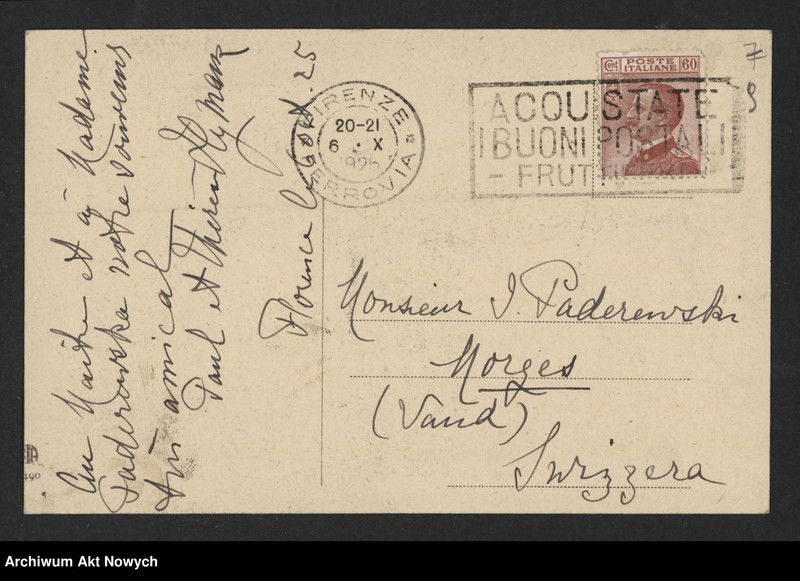 Au Maître et à Madame
Paderewska notre souvenir
très amical
Paul et Thérèse Hymans
Florence 6 Oct. 25
FIRENZE
20-21
6 · X
1925
FERROVIA
ACQUISTATE
I BUONI POSTALI
- FRUTTI
Cent POSTE ITALIANE 60
7
8
Monsieur I. Paderewski
Morges
(Vaud)
Svizzera
190
Archiwum Akt Nowych